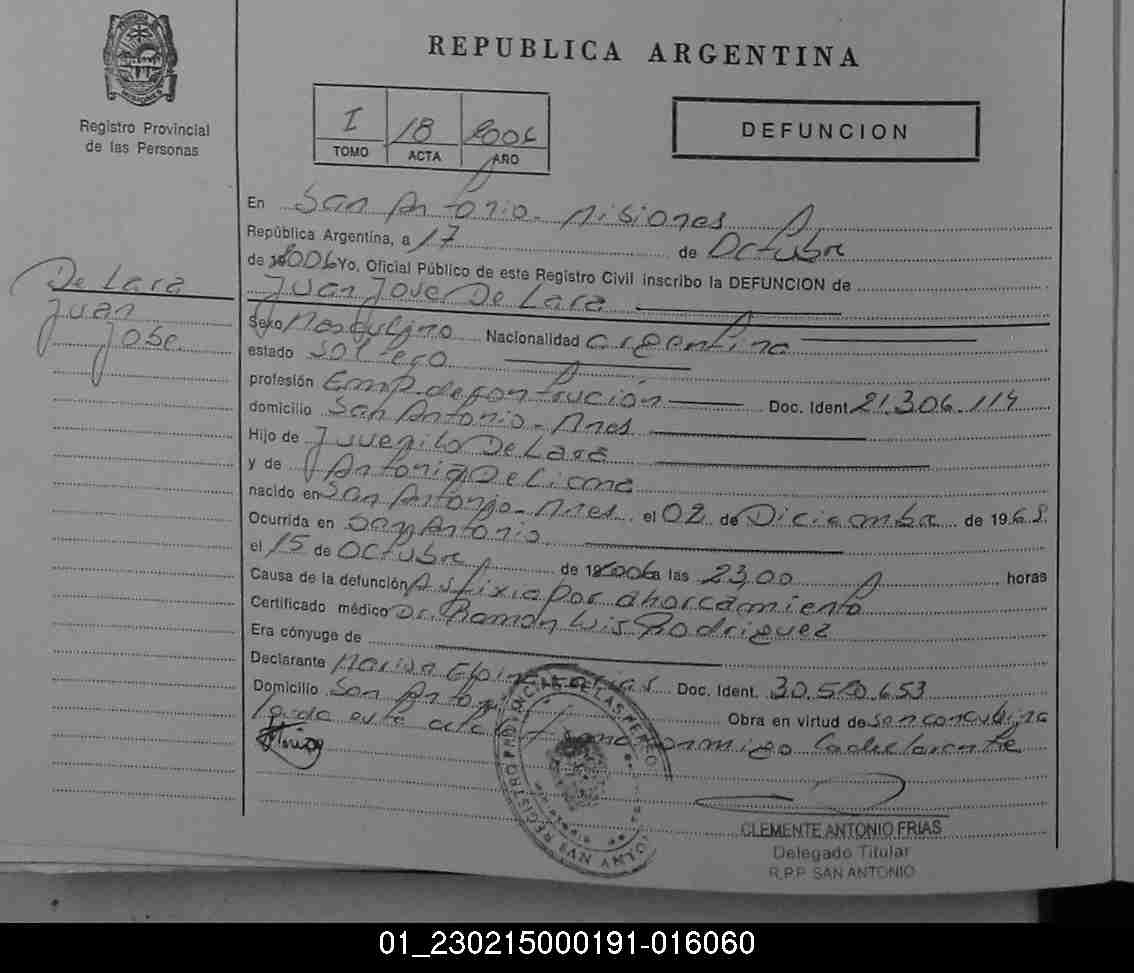 REPUBLICA ARGENTINA
Registro Provincial
de las Personas
I 18 2006
TOMO ACTA AÑO
DEFUNCION
En San Antonio - Misiones
República Argentina, a 17 de Octubre
de 2006 Yo, Oficial Público de este Registro Civil inscribo la DEFUNCION de
De Lara
Juan
José
Juan José De Lara
Sexo Masculino Nacionalidad argentina
estado Soltero
profesión Emp. de Contrucción Doc. Ident. 21.306.114
domicilio San Antonio - Mnes
Hijo de Juvenilo De Lara
y de Antonia De Lima
nacido en San Antonio - Mnes. el 02 de Diciembre de 1968.
Ocurrida en San Antonio
el 15 de Octubre de 2006 a las 23,00 horas
Causa de la defunción Asfixia por ahorcamiento
Certificado médico Dr. Ramon Luis Rodriguez
Era cónyuge de
Declarante Marisa Doc. Ident. 30.510.653
Domicilio San Antonio Obra en virtud de ser concubina
Leida esta acta firma conmigo la declarante
CLEMENTE ANTONIO FRIAS
Delegado Titular
R.P.P. SAN ANTONIO
01_230215000191-016060